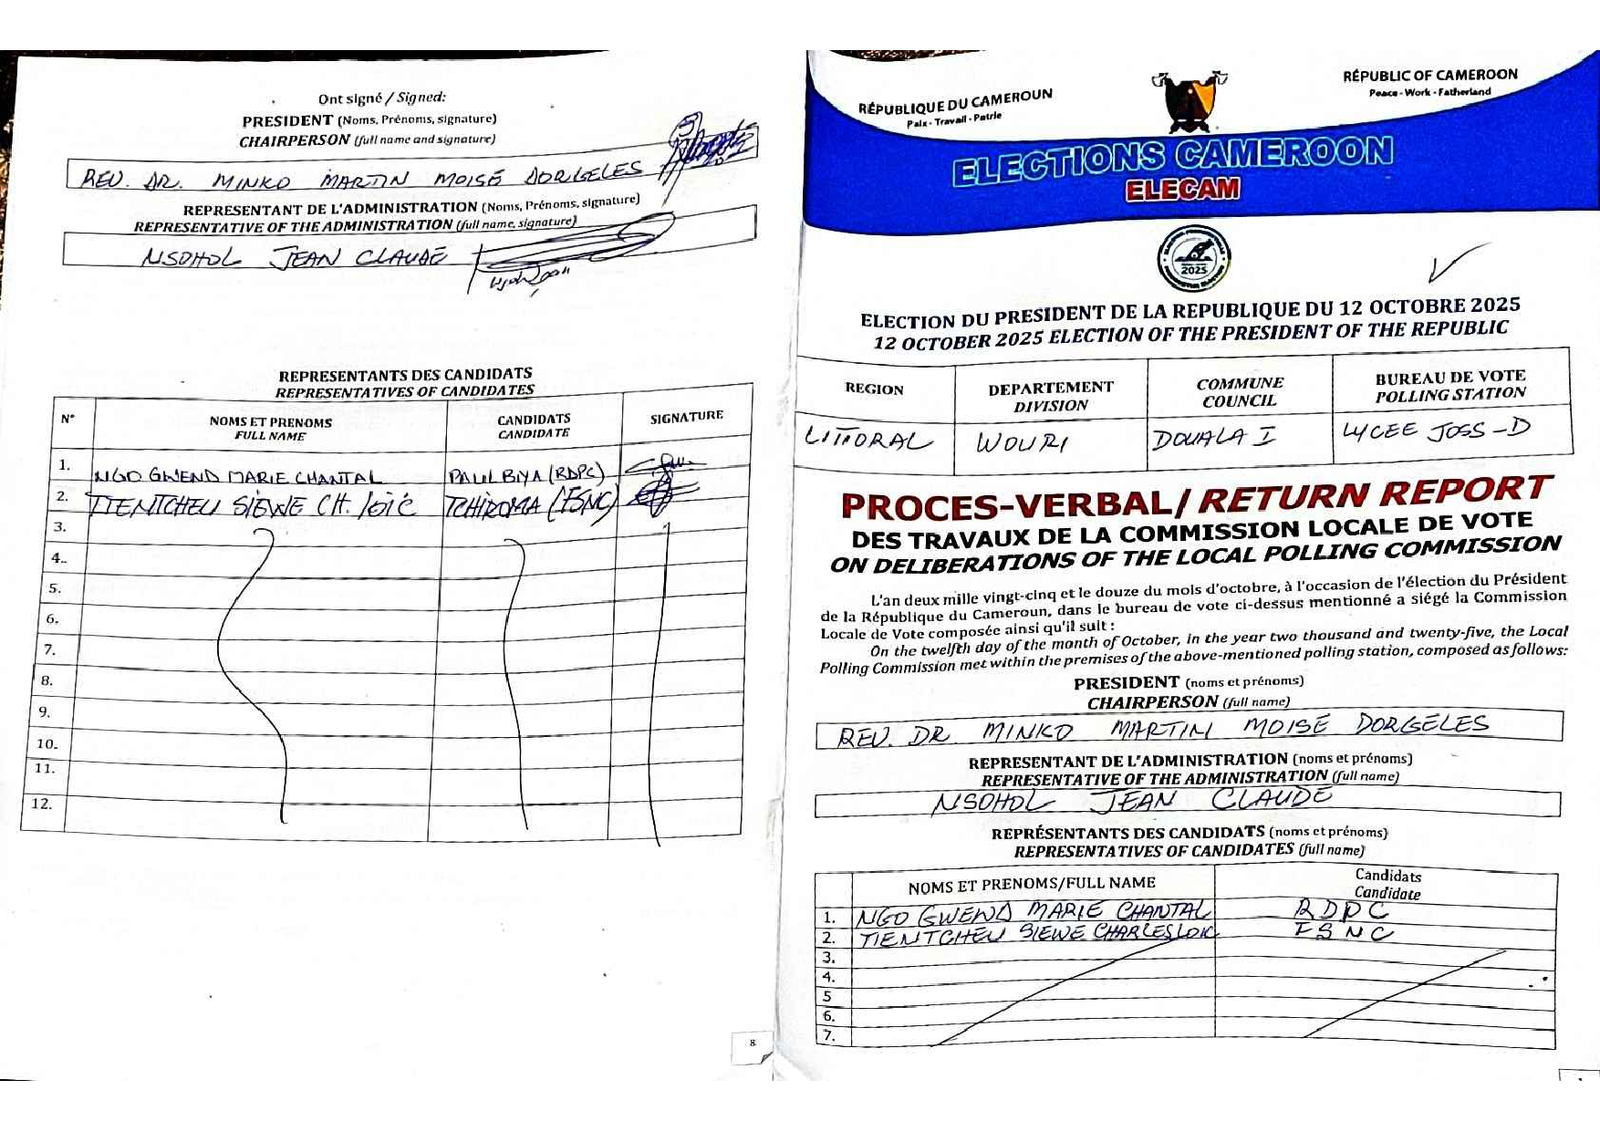 Ont signé / Signed:
PRESIDENT (Noms, Prénoms, signature)
CHAIRPERSON (full name and signature)
REV. DR. MINKO MARTIN MOISE DORGELES
REPRESENTANT DE L'ADMINISTRATION (Noms, Prénoms, signature)
REPRESENTATIVE OF THE ADMINISTRATION (full name, signature)
NSOHOL JEAN CLAUDE
REPRESENTANTS DES CANDIDATS
REPRESENTATIVES OF CANDIDATES
N° NOMS ET PRENOMS CANDIDATS SIGNATURE
FULL NAME CANDIDATE
1. NGO GWEND MARIE CHANTAL PAUL BIYA (RDPC)
2. TIENTCHEU SIEWE CH. loïc TCHIROMA (FSNC)
3.
4..
5.
6.
7.
8.
9.
10.
11.
12.
8
RÉPUBLIQUE DU CAMEROUN
Paix - Travail - Patrie
RÉPUBLIC OF CAMEROON
Peace - Work - Fatherland
ELECTIONS CAMEROON
ELECAM
2025
ELECTION DU PRESIDENT DE LA REPUBLIQUE DU 12 OCTOBRE 2025
12 OCTOBER 2025 ELECTION OF THE PRESIDENT OF THE REPUBLIC
REGION DEPARTEMENT COMMUNE BUREAU DE VOTE
DIVISION COUNCIL POLLING STATION
LITTORAL WOURI DOUALA I LYCEE JOSS-D
PROCES-VERBAL/ RETURN REPORT
DES TRAVAUX DE LA COMMISSION LOCALE DE VOTE
ON DELIBERATIONS OF THE LOCAL POLLING COMMISSION
L'an deux mille vingt-cinq et le douze du mois d'octobre, à l'occasion de l'élection du Président
de la République du Cameroun, dans le bureau de vote ci-dessus mentionné a siégé la Commission
Locale de Vote composée ainsi qu'il suit :
On the twelfth day of the month of October, in the year two thousand and twenty-five, the Local
Polling Commission met within the premises of the above-mentioned polling station, composed as follows:
PRESIDENT (noms et prénoms)
CHAIRPERSON (full name)
REV. DR MINKO MARTIN MOISE DORGELES
REPRESENTANT DE L'ADMINISTRATION (noms et prénoms)
REPRESENTATIVE OF THE ADMINISTRATION (full name)
NSOHOL JEAN CLAUDE
REPRÉSENTANTS DES CANDIDATS (noms et prénoms)
REPRESENTATIVES OF CANDIDATES (full name)
NOMS ET PRENOMS/FULL NAME Candidats
Candidate
1. NGO GWEND MARIE CHANTAL RDPC
2. TIENTCHEU SIEWE CHARLES LOIC FSNC
3.
4.
5
6.
7.